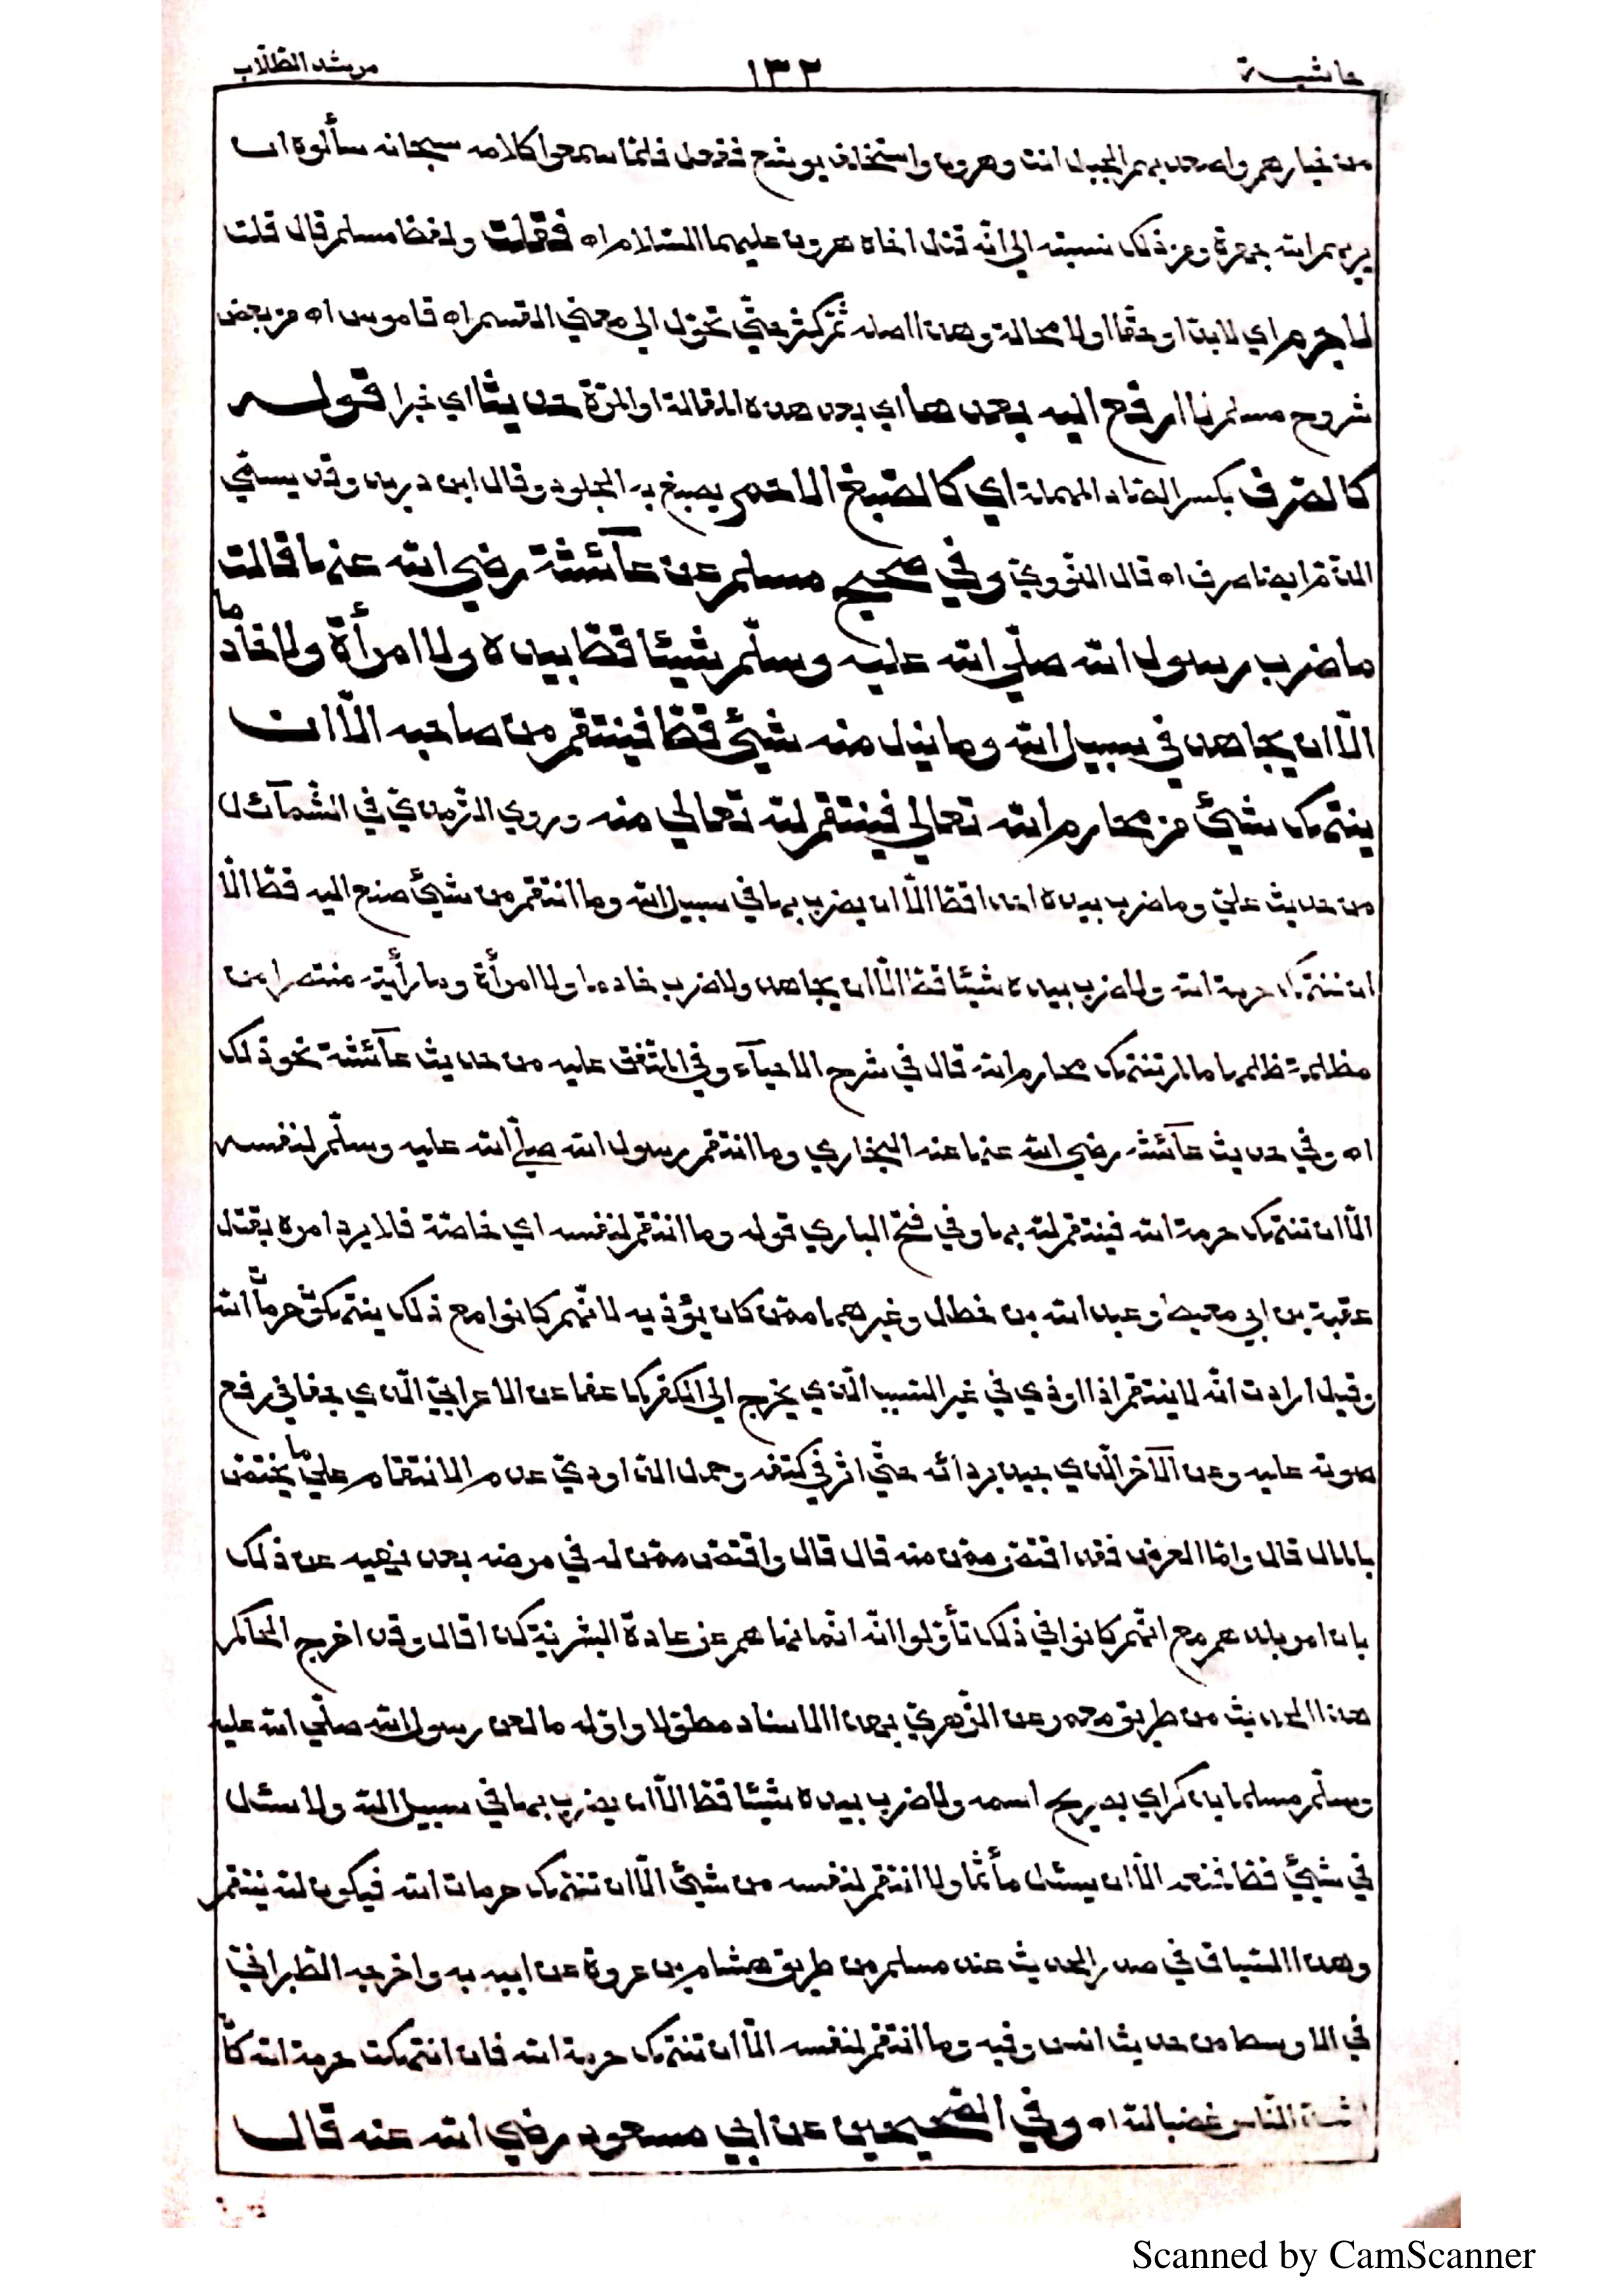 حاشية ١٣٢ مرشد الطلّاب
من خيارهم واصعد بهم الجبل انت وهرون واستخلف يوشع ففعل فلمّا سمعوا كلامه سبحانه سألوه ان
يريهم الله جهرة ومن ذلك نسبته الى انّه قتل اخاه هرون عليهما السّلام اه فقلت ولفظ مسلم قال قلت
لا جرم اي لا بدّ او حقّا او لا محالة وهذا اصله ثمّ كثر حتّي تحوّل الي معني القسم اه قاموس اه من بعض
شروح مسلم لا ارفع اليه بعدها اي بعد هذه المقالة او المرّة حديثا اي خبرا قوله
كالصّرف بكسر الصّاد المهملة اي كالصّبغ الاحمر يصبغ به الجلود وقال ابن دريد وقد يسمّي
الدّم ايضا صرف اه قال النّووي وفي صحيح مسلم عن عآئشة رضي الله عنها قالت
ما ضرب رسول الله صلّي الله عليه وسلّم شيئا قطّ بيده ولا امرأة ولا خادما
الّا ان يجاهد في سبيل الله وما نيل منه شيئ قطّ فينتقم من صاحبه الّا ان
ينتهك شيئ من محارم الله تعالي فينتقم لله تعالي منه وروي التّرمذيّ في الشّمآئل
من حديث عليّ وما ضرب بيده احدا قطّ الّا ان يضرب بها في سبيل الله وما انتقم من شيئ صنع اليه قطّ الّا
ان تنتهك حرمة الله ولا ضرب بيده شيئا قطّ الّا ان يجاهد ولا ضرب خادما ولا امرأة وما رأيته منتصرا من
مظلمة ظلمها ما لم تنتهك محارم الله قال في شرح الاحيآء وفي المتّفق عليه من حديث عآئشة نحو ذلك
اه وفي حديث عآئشة رضي الله عنها عند البخاري وما انتقم رسول الله صلّي الله عليه وسلّم لنفسه
الّا ان تنتهك حرمة الله فينتقم لله بها وفي فتح الباري قوله وما انتقم لنفسه اي خاصّة فلا يرد امره بقتل
عقبة بن ابي معيط وعبد الله بن خطل وغيرهما ممّن كان يؤذيه لانّهم كانوا مع ذلك ينتهكون حرمات الله
وقيل ارادت انّه لا ينتقم اذا اوذي في غير السّبب الّذي يخرج الي الكفر كما عفا عن الاعرابيّ الّذي جفا في رفع
صوته عليه وعن الآخر الّذي جبذ بردائه حتّي اثر في كتفه وحمل الدّاوديّ عدم الانتقام علي ما يختصّ
بالمال قال وامّا العرض فقد اقتصّ ممّن منه قال قال واقتصّ ممّن لدّه في مرضه بعد نهيه عن ذلك
بان امر بلدّهم مع انّهم كانوا في ذلك تأوّلوا انّه انّما نهاهم عن عادة البشريّة كذا قال وقد اخرج الحاكم
هذا الحديث من طريق معمر عن الزّهريّ بهذا الاسناد مطوّلا واوّله ما لعن رسول الله صلّي الله عليه
وسلّم مسلما بذكر اي بصريح اسمه ولا ضرب بيده شيئا قطّ الّا ان يضرب بها في سبيل الله ولا سئل
في شيئ قطّ فمنعه الّا ان يسئل مأثما ولا انتقم لنفسه من شيئ الّا ان تنتهك حرمات الله فيكون لله ينتقم
وهذا السّياق في صدر الحديث عند مسلم من طريق هشام بن عروة عن ابيه به واخرجه الطّبرانيّ
في الاوسط من حديث انس وفيه وما انتقم لنفسه الّا ان تنتهك حرمة الله فان انتهكت حرمة الله كان
اشدّ النّاس غضبا لله اه وفي الصّحيحين عن ابي مسعود رضي الله عنه قال
Scanned by CamScanner